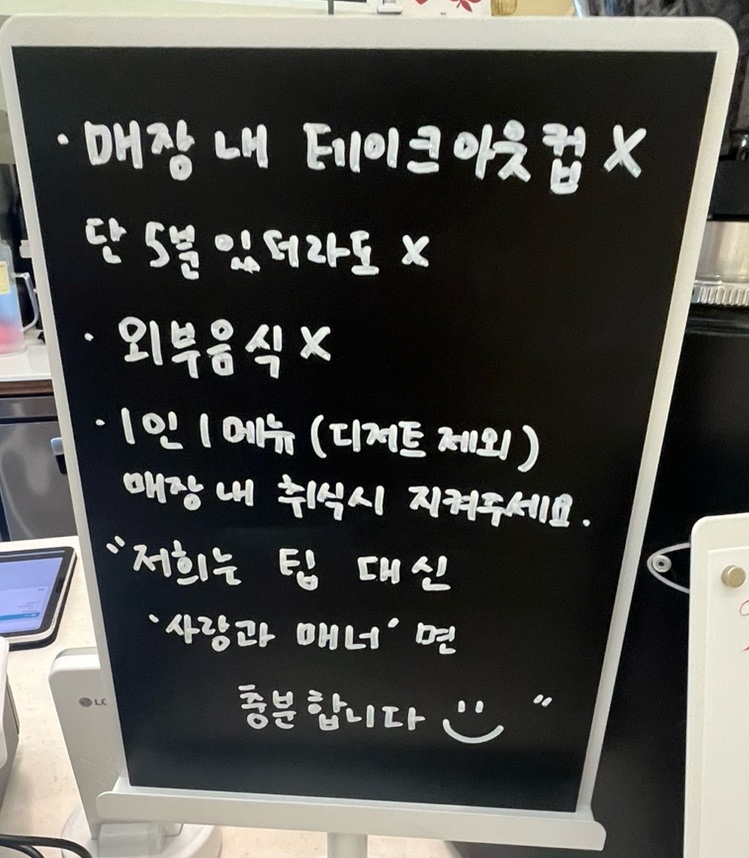 · 매장 내 테이크아웃컵 X
단 5분 있더라도 X
· 외부음식 X
· 1인 1메뉴 (디저트 제외)
매장 내 취식시 지켜주세요.
"저희는 팁 대신
'사랑과 매너' 면
충분합니다 "
LG